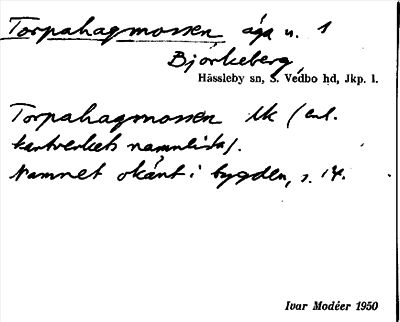 Torpahagmossen äga n. 1
Björkeberg
Hässleby sn, S. Vedbo hd, Jkp. l.
Torpahagmossen Uk (enl.
kartverkets namnlista).
Namnet okänt i bygden, s. 14.
Ivar Modéer 1950